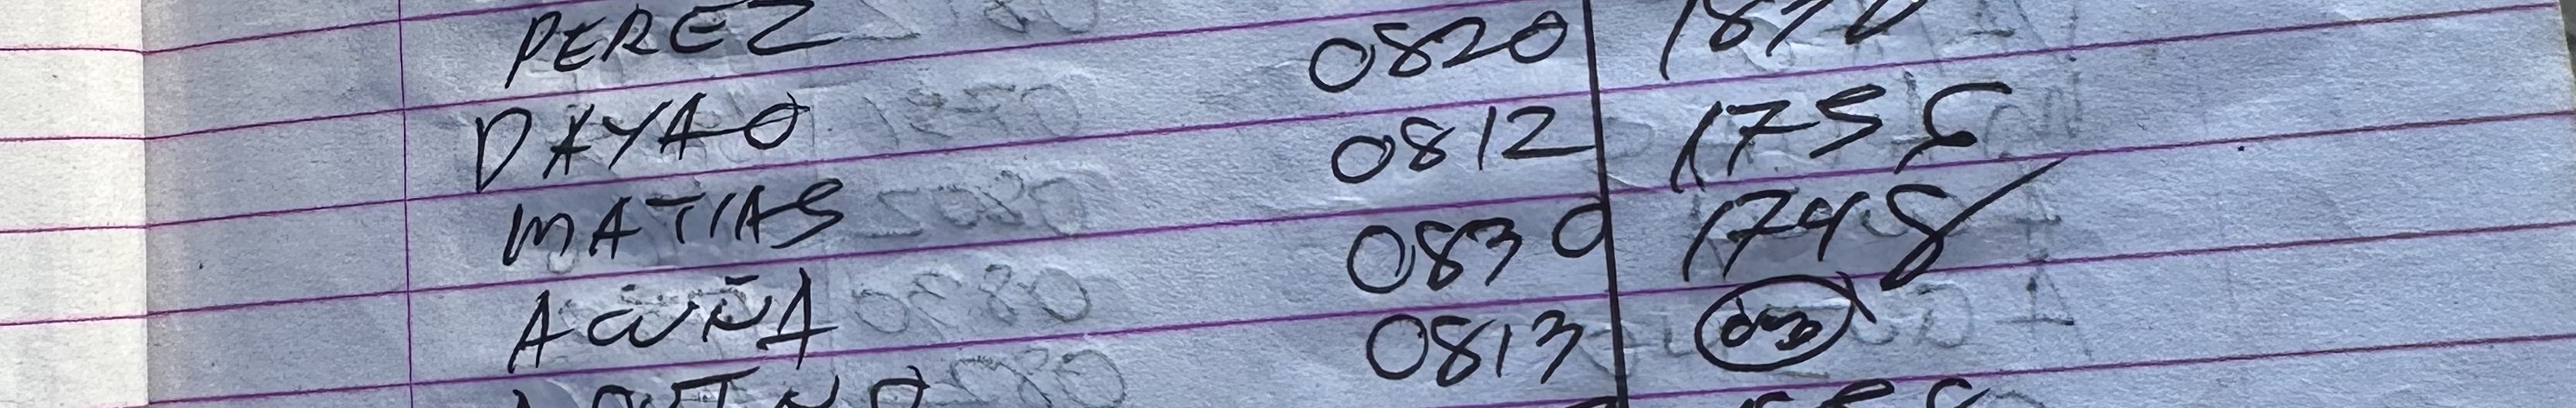 PEREZ 0820 1820
DAYAO 0812 1755
MATIAS 0830 1748
ACUÑA 0813